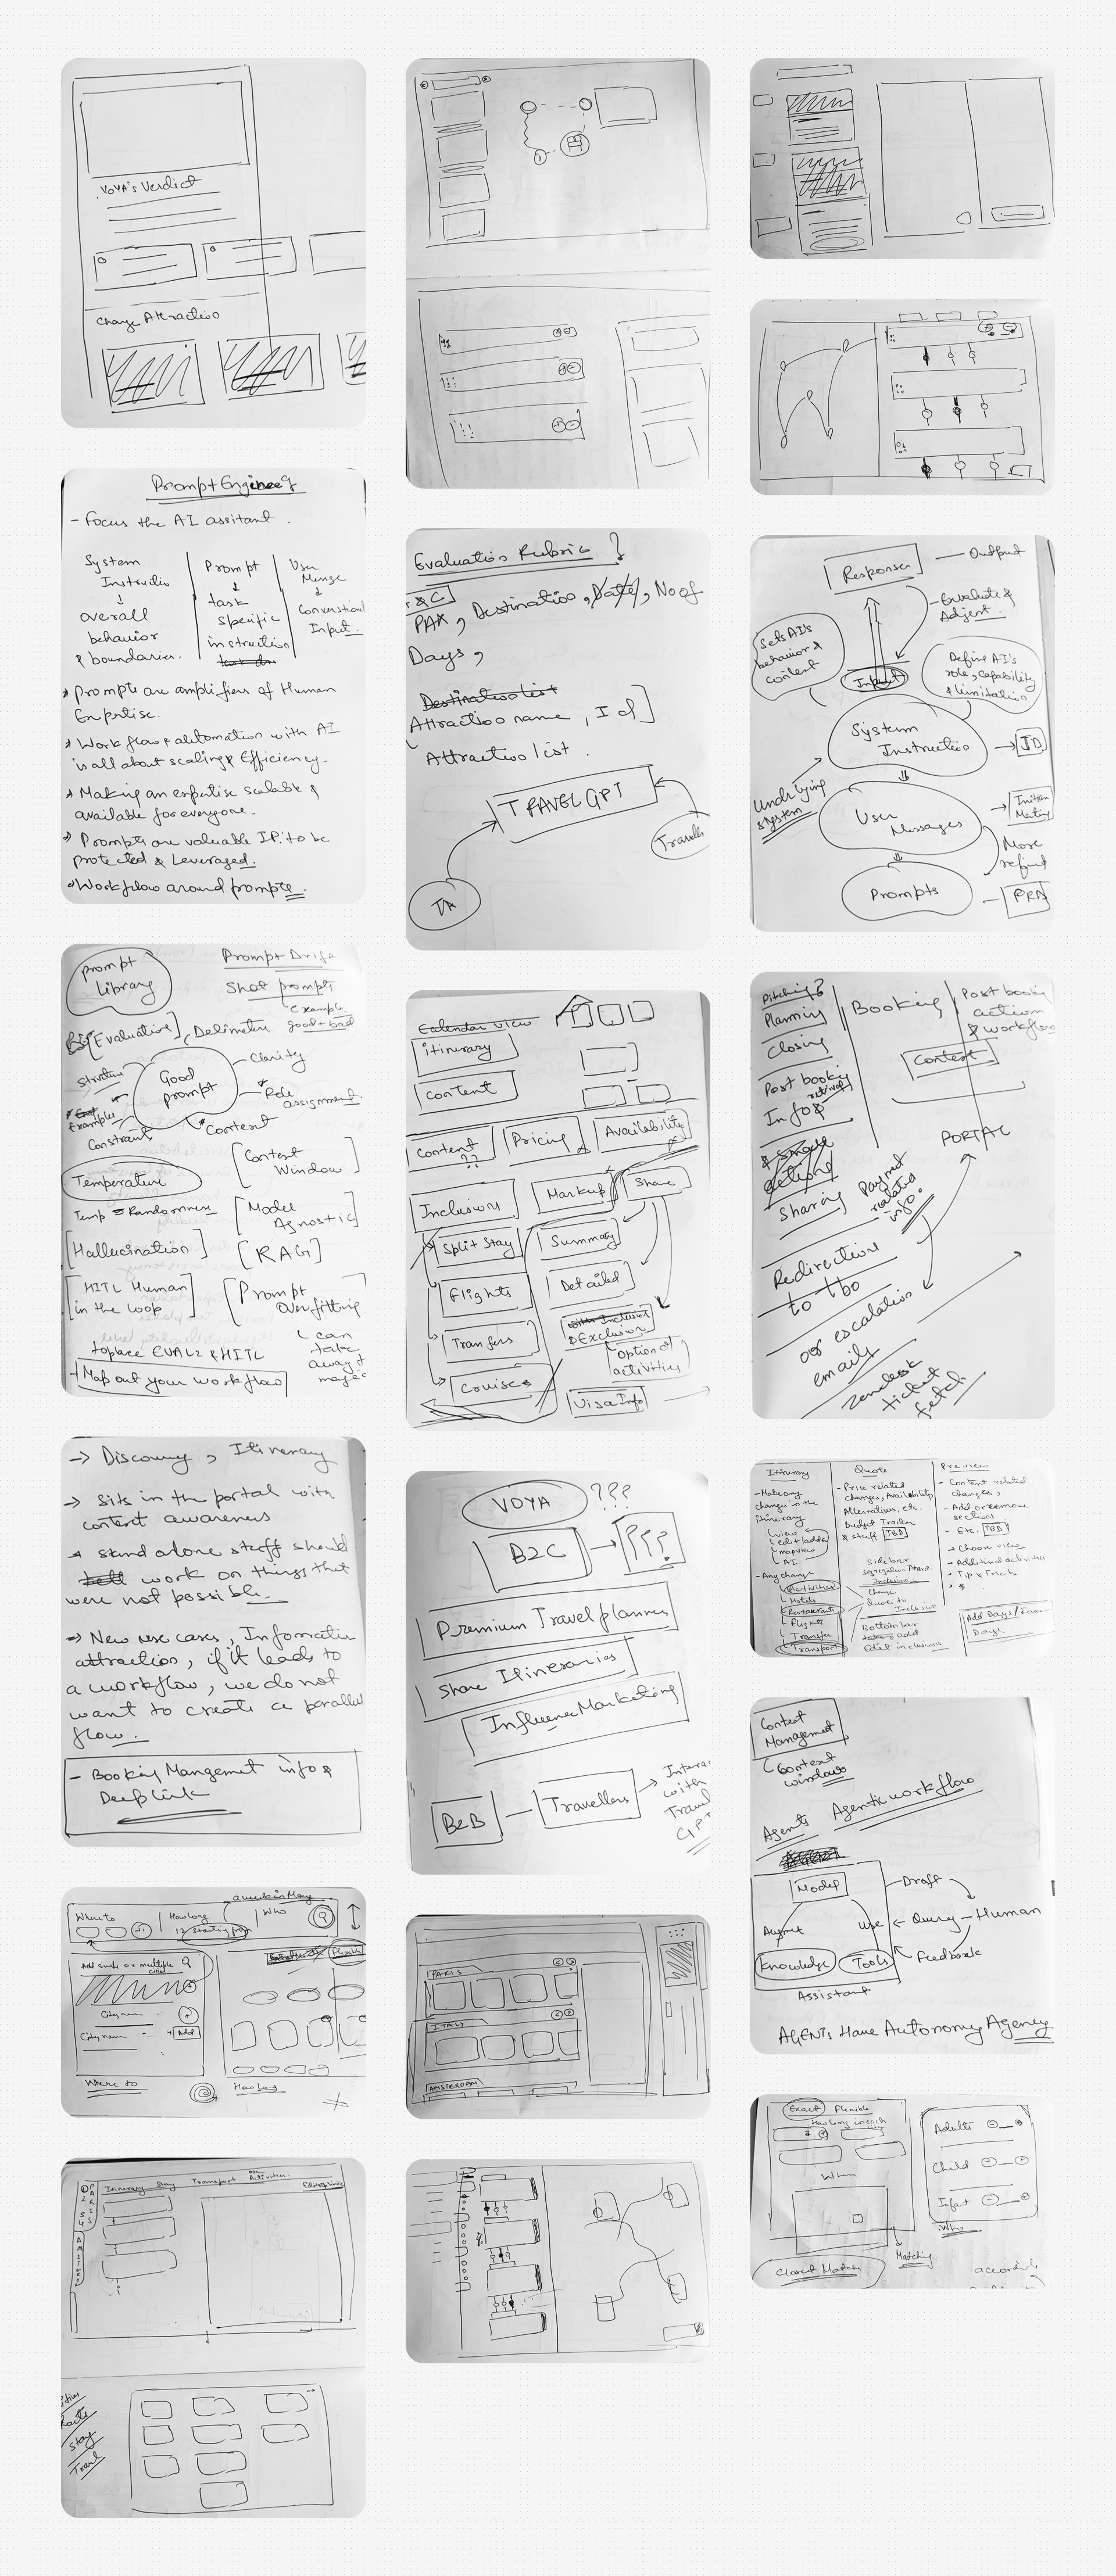 VOYA's Verdict
Change Attractio
Prompt Enginee
- Focus the AI assitant.
System
Instructio
overall
behavior
& boundaries.
Prompt
task
specific
instruction
User
Conversational
Input.
Prompts are amplifiers of Human
Expertise.
Workflow & automation with AI
is all about scaling & Efficiency.
Making an expertise scalable &
available for everyone.
Prompts are valuable IP. to be
protected & Leveraged.
Workflow around prompts.
Prompt
Library
Shot prompts
Examples
good + bad
[Evaluation], Delimeters
Good
prompt
Structure
Clarity
Role
assignment
Examples
Constraint
Context
Temperature
Temp = Randomness
[Context
Window]
[Model
Agnostic]
[Hallucination]
[RAG]
[HITL Human
in the loop]
[Prompt
Overfitting
can
take
away
EVALS & HITL
Map out your workflow
→ Discovery, Itinerary
→ Sits in the portal with
context awareness
stand alone stuff should
work on things that
were not possible.
→ New use cases, Informatio
attraction, if it leads to
a workflow, we do not
want to create a parallel
flow.
- Booking Mangement info &
Deeplink
Where to
How long
Who
Add single or multiple
City name
City name
+ Add
Where to
How long
Itinerary Stay Transport Activities
Stay
Evaluatio Rubric ?
T & C
PAX, Destinatio, Date, No of
Days,
Destination list
Attractio name, Id]
Attractio list.
TRAVEL GPT
TA
Calendar View
itinerary
Content
Content
??
Pricing
Availability
Inclusions
Markup
Share
Split Stay
Summary
Flights
Detailed
Transfers
& Exclusion
Option of
activities
Cruises
Visa Info
VOYA
???
B2C
???
Premium Travel planner
Share Itineraries
Influence Marketing
B2B
Travellers
with
PARIS
ITALY
AMSTERDAM
Response
Output
Evaluate &
Adjust.
Sets AI's
behavior &
context
Input
Define AI's
role, capability
& limitation
System
Instructio
JD
Underlying
system
User
Messages
Initial
Meeting
More
refined
Prompts
PRD
Pitching?
Planning
Closing
Post booking
Info &
Sharing
Redirection
to tbo
or escalation
email
zendesk
ticket
fetch.
Booking
Post booking
action
& workflow
Content
PORTAL
Payment
related
info.
Itinerary
- Make any
changes in the
itinerary
view
edit/add
mapview
AI
- Any change
Activities
Hotels
Restaurants
Flights
Transfer
Transport
Quote
- Price related
changes, Availability
Alternatives, etc.
Budget Tracker
& stuff TBD
Side bar
Change
Quote to
Inclusion
Bottom bar
Edit inclusions
Preview
- Content related
changes,
- Add or remove
sections
- Etc. TBD
- Choose view
- Additional activities
- Tip & Trick
Add Days/
Days.
Context
Management
Context
windows
Agents
Agentic workflow
Model
Draft
Use
Query - Human
Knowledge
Tools
Feedback
Assistant
AGENTs Have Autonomy Agency
Exact
Flexible
How long in each
When
Closest Matches
Matching
Adults
Child
Infant
Who